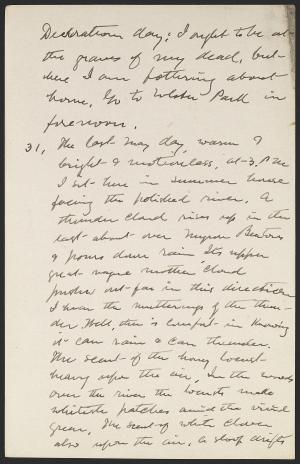 Decoration day; I ought to be at
the graves of my dead, but
here I am pottering about
home. Go to Webster Park in
forenoon.
31, The last May day, warm &
bright & motionless, at 3 P.M.
I sit here in summer house
facing the polished river. A
thunder cloud rises up in the
east about over Myron Bentons
& pours down rain. Its upper
great vague mother cloud
pushes out far in this direction
I hear the mutterings of the thun-
der. Well, there is comfort in knowing
it can rain & can thunder.
The scent of the honey locust
heavy upon the air, In the woods
over the river the locusts make
whitish patches amid the vivid
green, The scent of white clover
also upon the air. A sloop drifts